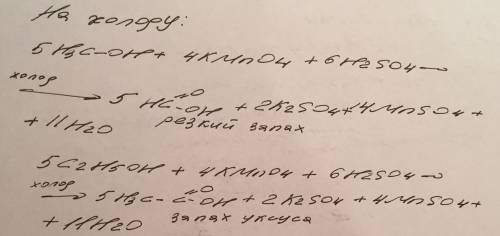 На холоду:
5H3C-OH + 4KMnO4 + 6H2SO4 —
холод → 5 HC=O-OH + 2K2SO4 + 4MnSO4 +
+ 11H2O резкий запах
5C2H5OH + 4KMnO4 + 6H2SO4 —
холод → 5H3C-C=O-OH + 2K2SO4 + 4MnSO4 +
+ 11H2O запах уксуса